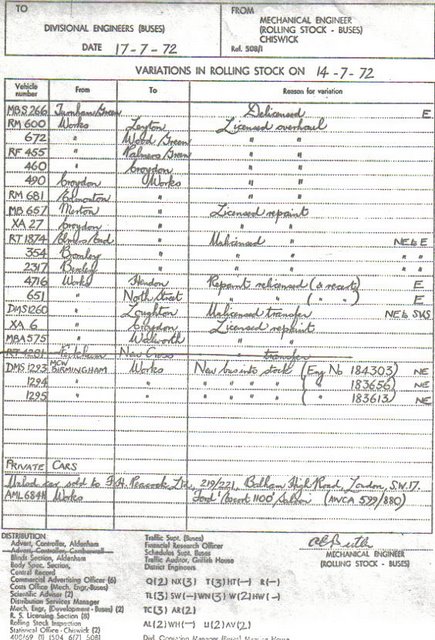 TO
FROM
DIVISIONAL ENGINEERS (BUSES)
MECHANICAL ENGINEER
(ROLLING STOCK - BUSES)
CHISWICK
DATE 17-7-72
Ref. 508/1
VARIATIONS IN ROLLING STOCK ON 14-7-72
Vehicle number From To Reason for variation
MBS 266 Turnham Green Delicensed E
RM 600 Works Leyton Licensed overhaul
672 " Wood Green " "
RF 455 " Palmers Green " "
460 " Croydon " "
490 Croydon Works " "
RM 681 Edmonton " " "
MB 657 Merton " Licensed repaint
XA 27 Croydon " " "
RT 1874 " Unlicensed " NEbE
354 Bromley " " " " "
2317 Bexley " " " " "
4716 Works Hendon Repaint relicensed (a recert) E
651 " North Street " " ( " ) E
DMS1260 " Loughton Unlicensed transfer NEb SKS
XA 6 " Croydon Licensed repaint
MBA575 " Walworth " "
New Cross " transfer
DMS 1293 MCW BIRMINGHAM Works New bus into stock (Eng No 184303) NE
1294 " " " " " " ( " 183656) NE
1295 " " " " " " ( " 183613) NE
PRIVATE CARS
Unlcd car sold to F.H. Peacock Ltd, 219/221, Balham High Road, London, SW.17.
AML 684H Works Ford 'Escort 1100' Saloon (MVCA 599/880)
DISTRIBUTION
Advert. Controller, Aldenham
Blinds Section, Aldenham
Body Spec. Section,
Central Record
Commercial Advertising Officer (6)
Costs Office (Mech. Engr.-Buses)
Scientific Adviser (2)
Distribution Services Manager
Mech. Engr. (Development - Buses) (2)
R. S. Licensing Section (5)
Rolling Stock Inspection
Statistical Office - Chiswick (2)
Traffic Supt. (Buses)
Financial Research Officer
Schedules Supt. Buses
Traffic Auditor, Griffith House
District Engineers
Q(2) NX(3) T(3) HT(–) R(–)
TL(3) SW(–) WN(3) W(2) HW(–)
TC(3) AR(2)
AL(2) WH(–) U(2) AV(2)
MECHANICAL ENGINEER
(ROLLING STOCK - BUSES)